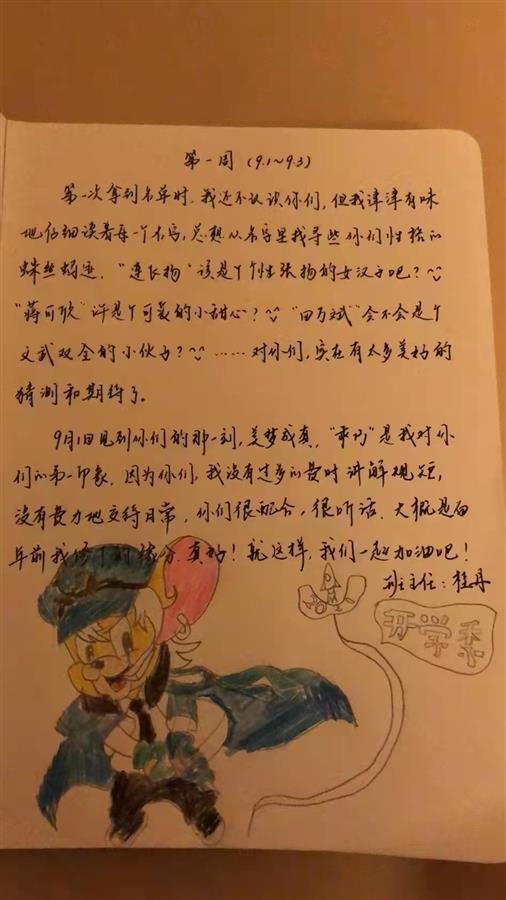 第一周(9.1~9.3)
第一次拿到名单时,我还不认识你们,但我津津有味
地仔细读着每一个名字,总想从名字里找寻些你们性格的
蛛丝蚂迹.“连长扬”该是个个性张扬的女汉子吧?
“蒋可欣”许是个可爱的小甜心?“田万斌”会不会是个
文武双全的小伙子?……对你们,实在有太多美好的
猜测和期待了。
9月1日见到你们的那一刻,美梦成真,“乖巧”是我对你
们的第一印象,因为你们,我没有过多的费时讲解规矩,
没有费力地交待日常,你们很配合,很听话.大概是百
年前我修下的缘分.真好!就这样,我们一起加油吧!
班主任:桂丹
开学季